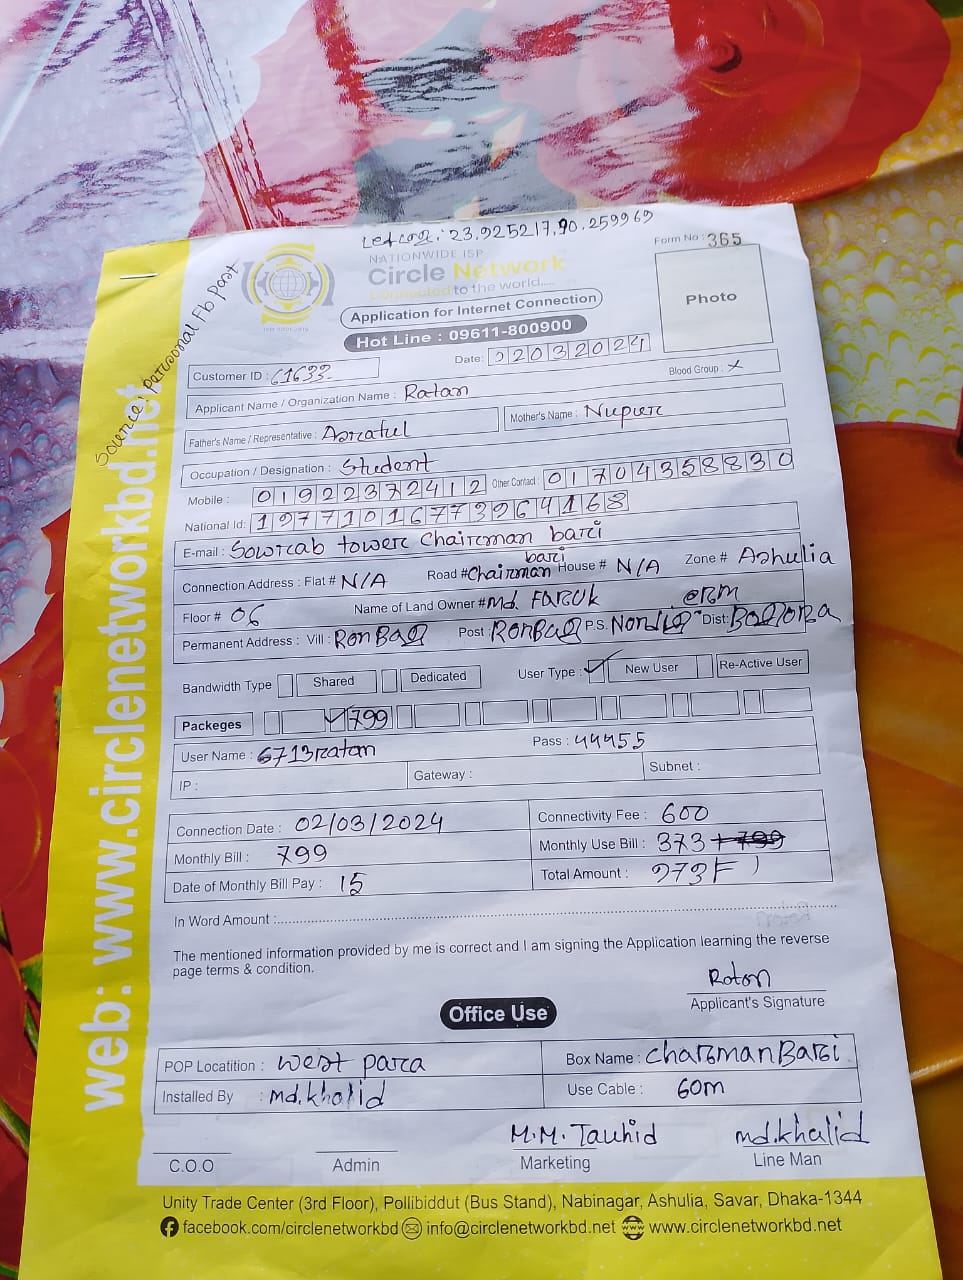 Let Long: 23.925217,90.259969
Form No : 365
NATIONWIDE ISP
Circle Network
Connected to the world....
Photo
Application for Internet Connection
Hot Line : 09611-800900
Source: personal Fb post
Date: 02032024
Customer ID : 61633
Blood Group : X
Applicant Name / Organization Name : Ratan
Father's Name / Representative : Asraful Mother's Name : Nupur
Occupation / Designation : Student
Mobile : 01922372412 Other Contact : 01704358830
National Id: 19771016773964168
E-mail : Sowrab tower Chairman bari
Connection Address : Flat # N/A Road # Chairman bari House # N/A Zone # Ashulia
Floor # 06 Name of Land Owner # Md. FARUK
Permanent Address : Vill : Post : P.S. Dist:
Bandwidth Type Shared Dedicated User Type : ✓ New User Re-Active User
Packeges ✓ 799
User Name : 6713ratan Pass : 44455
IP : Gateway : Subnet :
Connection Date : 02/03/2024 Connectivity Fee : 600
Monthly Bill : 799 Monthly Use Bill : 373 + 799
Date of Monthly Bill Pay : 15 Total Amount : 973
In Word Amount :
The mentioned information provided by me is correct and I am signing the Application learning the reverse
page terms & condition.
Roton
Applicant's Signature
Office Use
POP Locatition : West para Box Name : Chairman Bari
Installed By : md.khalid Use Cable : 60m
M.M. Tauhid md.khalid
C.O.O Admin Marketing Line Man
Unity Trade Center (3rd Floor), Pollibiddut (Bus Stand), Nabinagar, Ashulia, Savar, Dhaka-1344
facebook.com/circlenetworkbd info@circlenetworkbd.net www.circlenetworkbd.net
web: www.circlenetworkbd.net